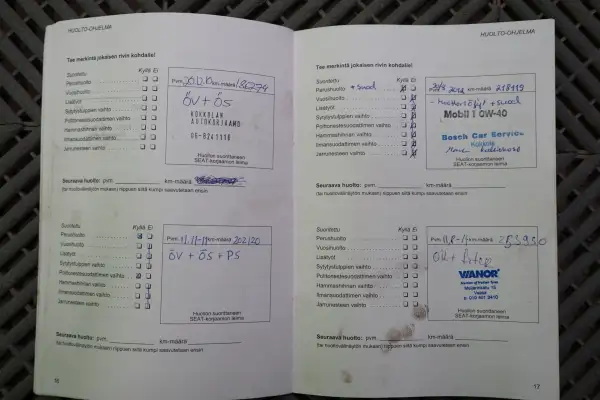 HUOLTO-OHJELMA
Tee merkintä jokaisen rivin kohdalle!
Suoritettu Kyllä Ei
Perushuolto
Vuosihuolto
Lisätyöt
Sytytystulppien vaihto
Polttonestesuodattimen vaihto
Hammashihnan vaihto
Ilmansuodattimen vaihto
Jarrunesteen vaihto
Pvm km-määrä 186274
ÖV + ÖS
KOKKOLAN
AUTOKORJAAMO
06-8241118
Huollon suorittaneen
SEAT-korjaamon leima
Seuraava huolto: pvm km-määrä
(tai huoltovälinäytön mukaan) riippuen siitä kumpi saavutetaan ensin
Suoritettu Kyllä Ei
Perushuolto
Vuosihuolto
Lisätyöt
Sytytystulppien vaihto
Polttonestesuodattimen vaihto
Hammashihnan vaihto
Ilmansuodattimen vaihto
Jarrunesteen vaihto
Pvm 11.11-11 km-määrä 202120
ÖV + ÖS + PS
Huollon suorittaneen
SEAT-korjaamon leima
Seuraava huolto: pvm km-määrä
(tai huoltovälinäytön mukaan) riippuen siitä kumpi saavutetaan ensin
16
HUOLTO-OHJELMA
Tee merkintä jokaisen rivin kohdalle!
Suoritettu Kyllä Ei
Perushuolto + suod
Vuosihuolto
Lisätyöt
Sytytystulppien vaihto
Polttonestesuodattimen vaihto
Hammashihnan vaihto
Ilmansuodattimen vaihto
Jarrunesteen vaihto
Pvm 2012 km-määrä 218119
+ suod
Mobil 1 0W-40
Bosch Car Service
Kokkola
Huollon suorittaneen
SEAT-korjaamon leima
Seuraava huolto: pvm km-määrä
(tai huoltovälinäytön mukaan) riippuen siitä kumpi saavutetaan ensin
Suoritettu Kyllä Ei
Perushuolto
Vuosihuolto
Lisätyöt
Sytytystulppien vaihto
Polttonestesuodattimen vaihto
Hammashihnan vaihto
Ilmansuodattimen vaihto
Jarrunesteen vaihto
Pvm km-määrä 253930
VIANOR
Vaasa
Huollon suorittaneen
SEAT-korjaamon leima
Seuraava huolto: pvm km-määrä
(tai huoltovälinäytön mukaan) riippuen siitä kumpi saavutetaan ensin
17